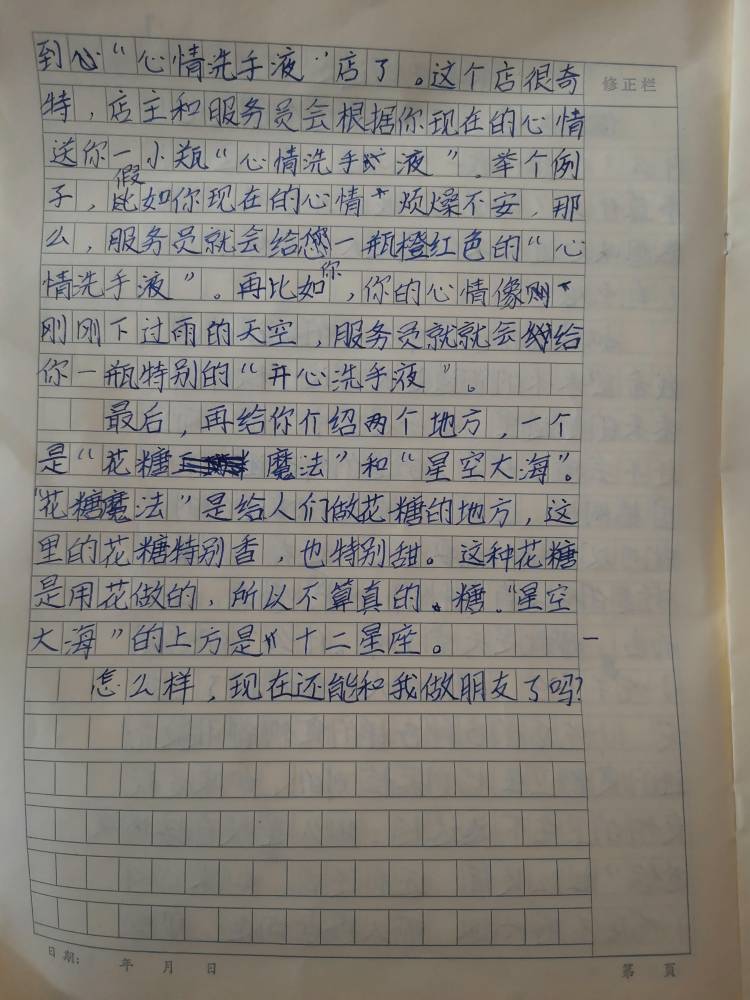 到心“心情洗手液”店了。这个店很奇
修正栏
特，店主和服务员会根据你现在的心情
送你一小瓶“心情洗手液”。举个例
假
子，比如你现在的心情烦燥不安，那
么，服务员就会给您一瓶橙红色的“心
你
情洗手液”。再比如，你的心情像刚
刚刚下过雨的天空，服务员就就会给
你一瓶特别的“开心洗手液”。
最后，再给你介绍两个地方，一个
是“花糖魔法”和“星空大海”。
“花糖魔法”是给人们做花糖的地方，这
里的花糖特别香，也特别甜。这种花糖
是用花做的，所以不算真的糖。“星空
大海”的上方是十二星座。
怎么样，现在还能和我做朋友了吗?
日期: 年 月 日
第 頁